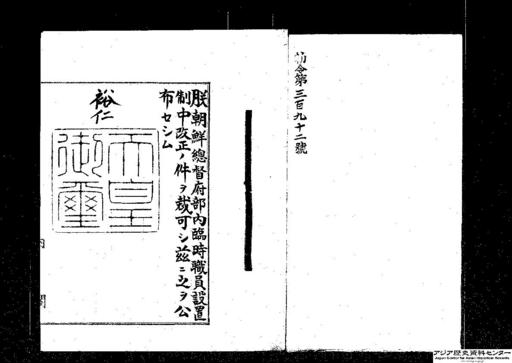 勅令第三百九十二號
朕朝鮮總督府部內臨時職員設置
制中改正ノ件ヲ裁可シ茲ニ之ヲ公
布セシム
裕仁
天皇
御璽
内
閣
アジア歴史資料センター
Japan Center for Asian Historical Records